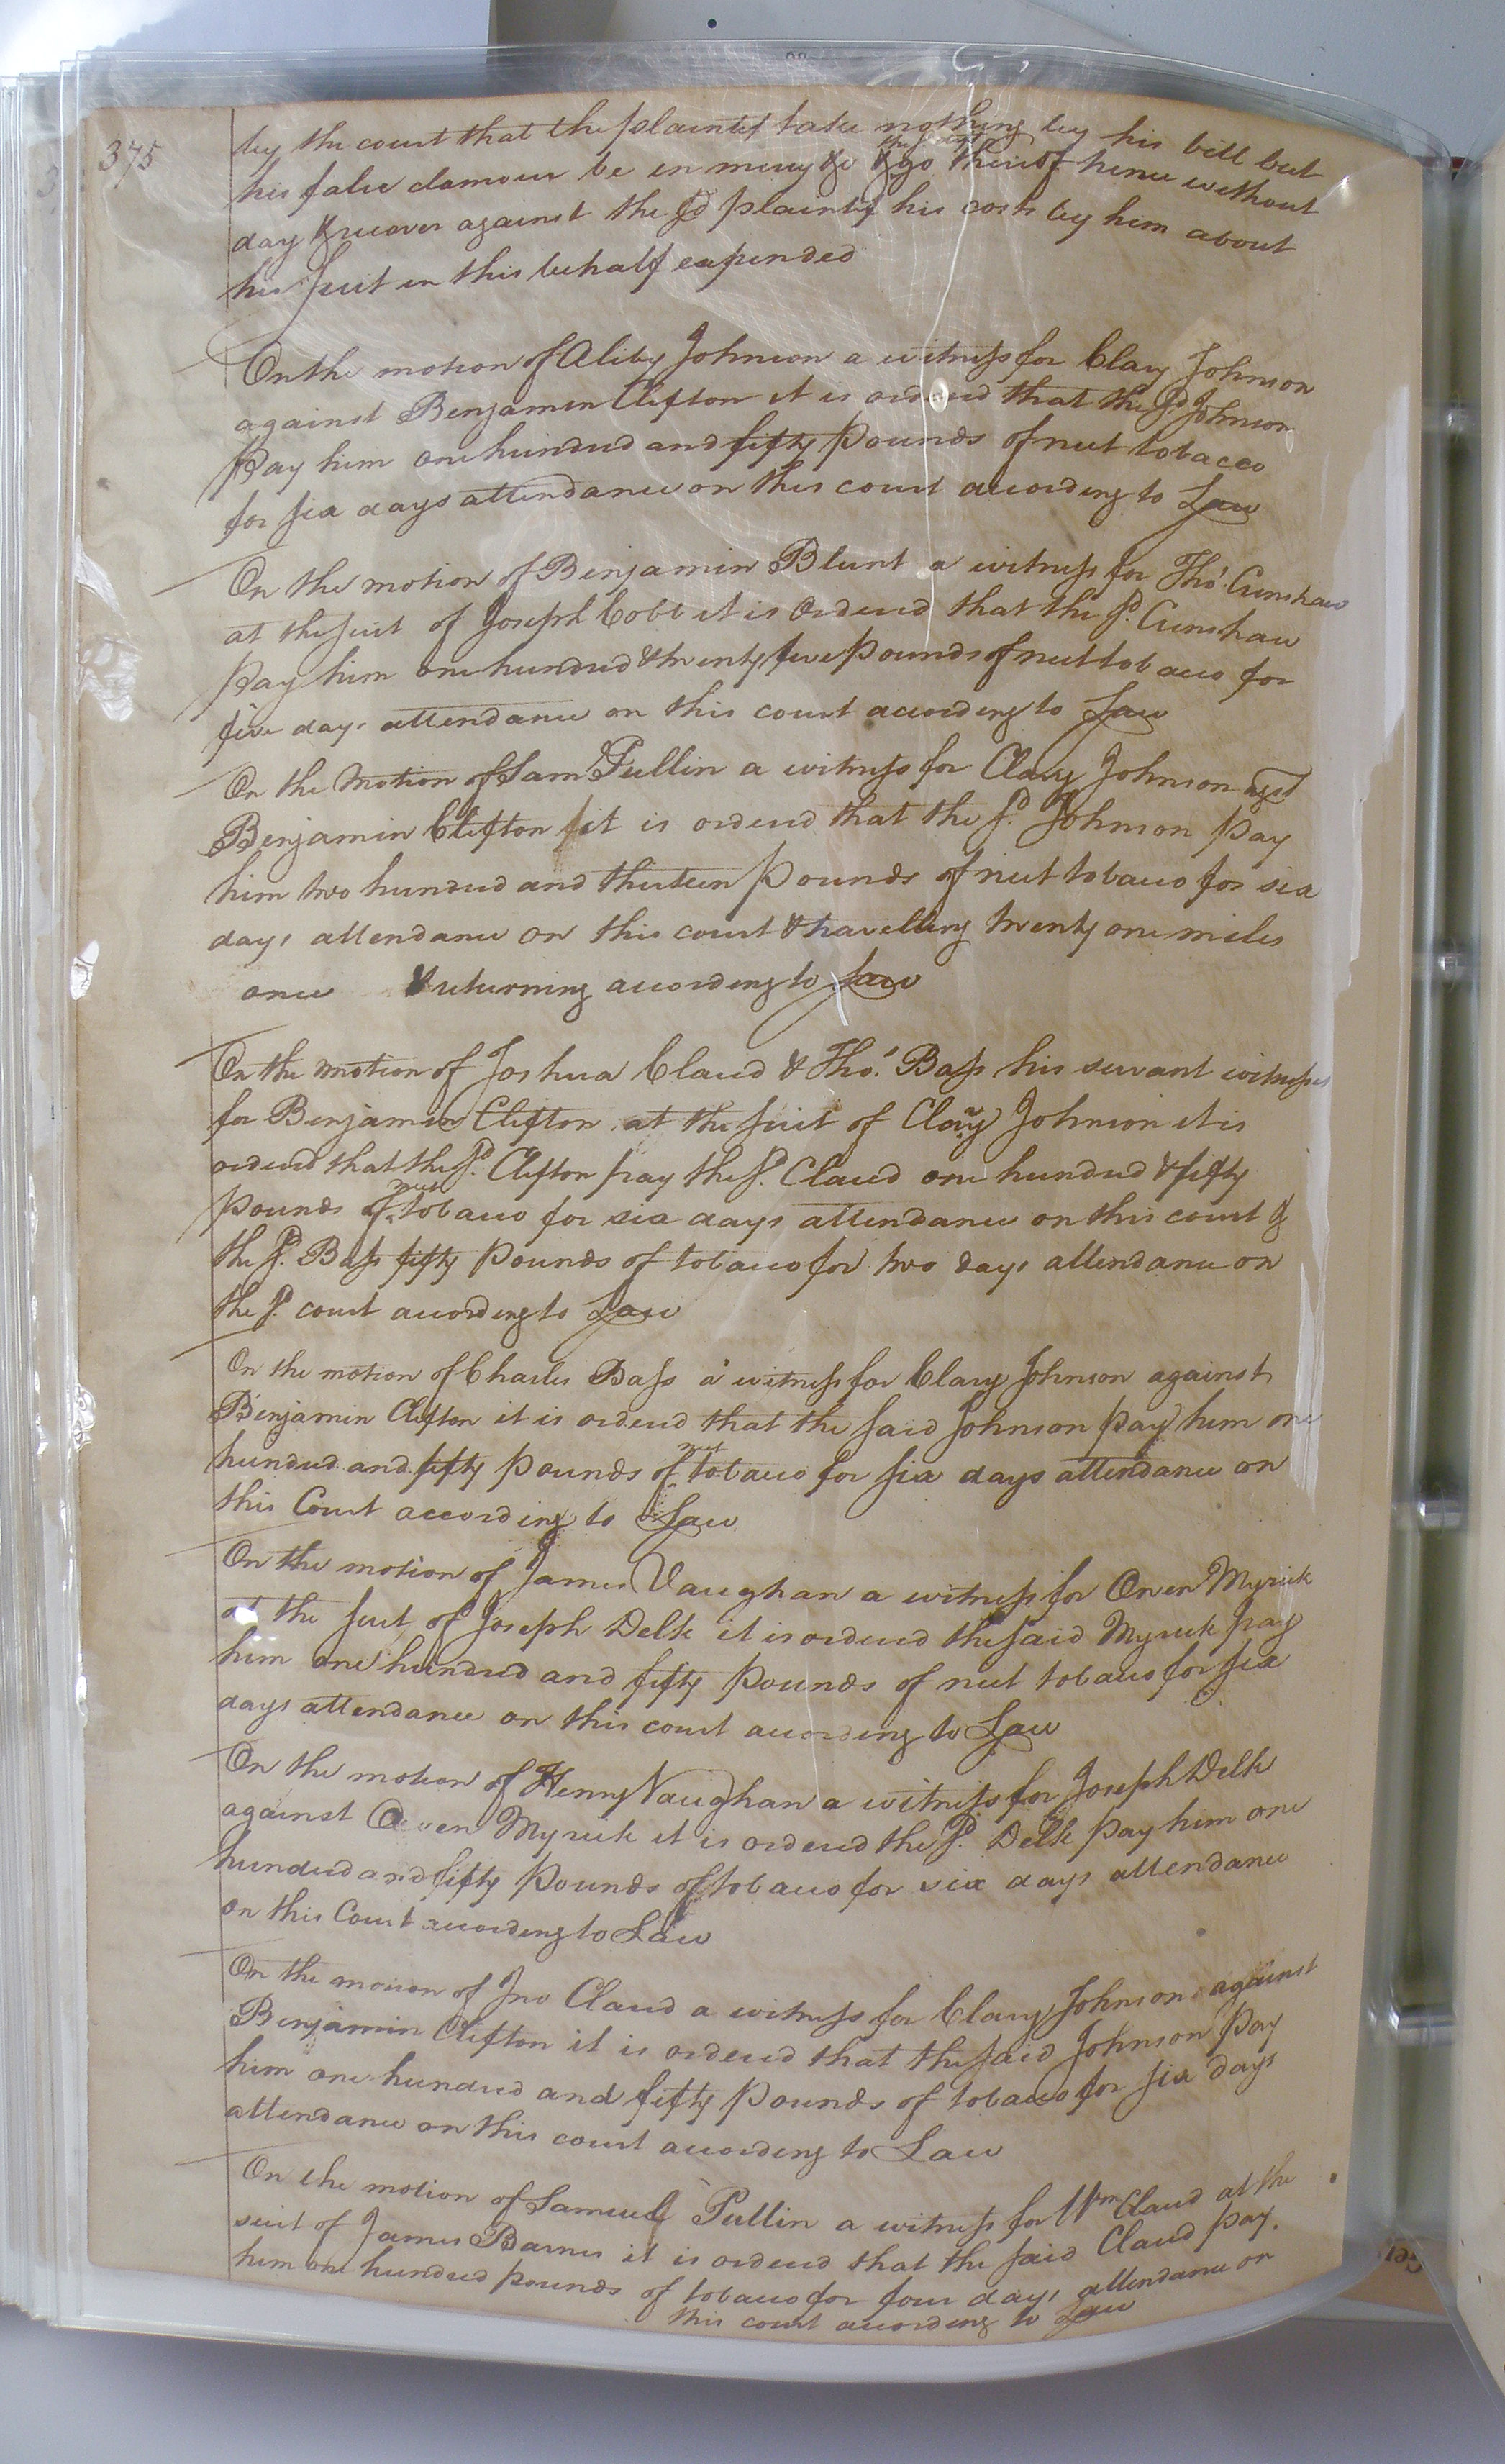 375
by the court that the plaintif take nothing by his bill but
his false clamour be in mercy &c & the go thereof hence without
day & recover against the sd plaintif his costs by him about
his suit in this behalf expended
On the motion of Aliby Johnson a witness for Clary Johnson
against Benjamin Clifton it is ordered that the sd Johnson
Pay him one hundred and fifty Pounds of neet tobacco
for six days attendance on this court according to Law
On the motion of Benjamin Blunt a witness for Thos. Crenshaw
at the suit of Joseph Cobb it is Ordered that the sd. Crenshaw
Pay him one hundred & twenty five Pounds of neet tobacco for
five days attendance on this court according to Law
On the Motion of Saml Pullin a witness for Clary Johnson agst
Benjamin Clifton it is ordered that the sd. Johnson Pay
him two hundred and thirteen Pounds of neet tobacco for six
days attendance on this court & travelling twenty one miles
once & returning according to Law
On the motion of Joshua Claud & Thos. Bass his servant witnesses
for Benjamin Clifton at the suit of Clary Johnson it is
ordered that the sd. Clifton pay the sd. Claud one hundred & fifty
Pounds of neet tobacco for six days attendance on this court &
the sd. Bass fifty Pounds of tobacco for two days attendance on
the sd. court according to Law
On the motion of Charles Bass a witness for Clary Johnson against
Benjamin Clifton it is ordered that the said Johnson Pay him one
hundred and fifty Pounds of neet tobacco for six days attendance on
this Court according to Law
On the motion of James Vaughan a witness for Owen Myrick
at the suit of Joseph Delk it is ordered the said Myrick pay
him one hundred and fifty Pounds of neet tobacco for six
days attendance on this court according to Law
On the motion of Henry Vaughan a witness for Joseph Delk
against Owen Myrick it is ordered the sd. Delk Pay him one
hundred and fifty Pounds of tobacco for six days attendance
on this Court according to Law
On the motion of Jno Claud a witness for Clary Johnson against
Benjamin Clifton it is ordered that the said Johnson Pay
him one hundred and fifty Pounds of tobacco for six days
attendance on this court according to Law
On the motion of Samuel Pullin a witness for Wm Claud at the
suit of James Barnes it is ordered that the said Claud Pay.
him one hundred Pounds of tobacco for four days attendance on
this court according to Law